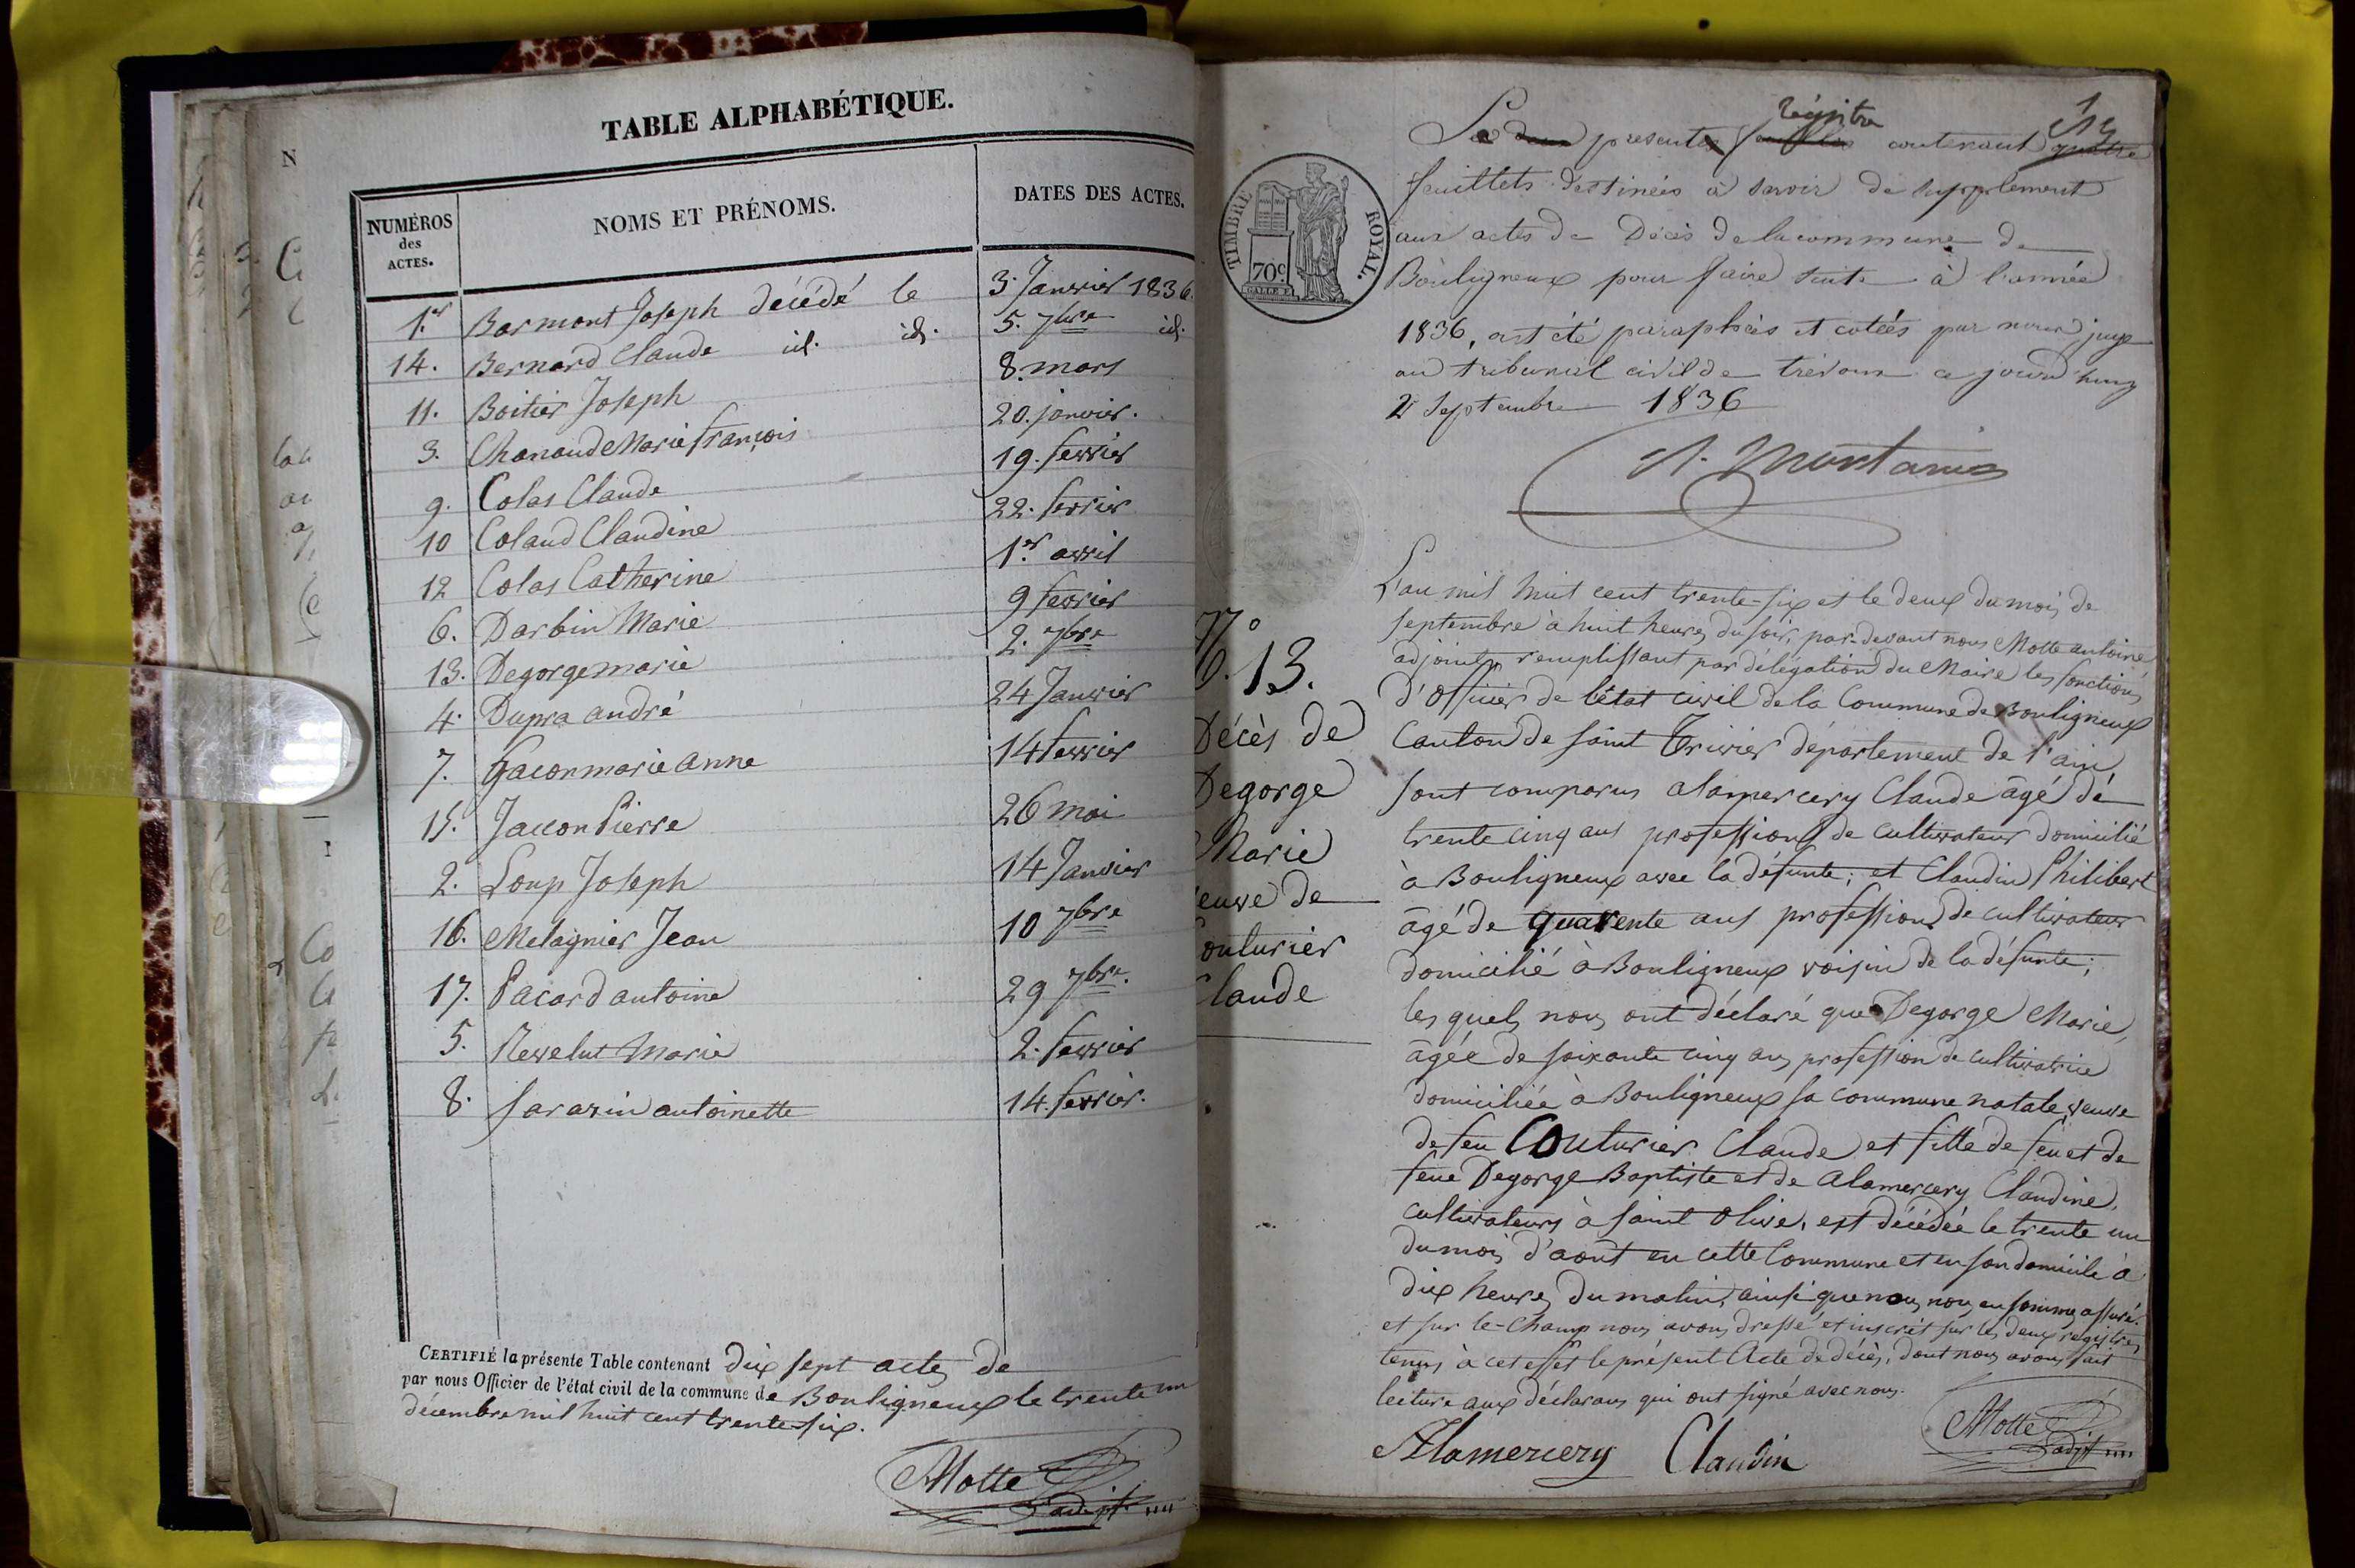 TABLE ALPHABÉTIQUE.
NUMÉROS des ACTES.
NOMS ET PRÉNOMS.
DATES DES ACTES.
1.er Barmont Joseph décédé le 3. Janvier 1836.
14. Bernard Claude id. id. 5. 7bre id.
11. Boitier Joseph 8. mars
3. Chanaud Marie françois 20. janvier.
9. Colas Claude 19. fevrier
10 Coland Claudine 22. fevrier
12 Colas Catherine 1.er avril
6. Darbin Marie 9 fevrier
13. Degorge marie 2. 7bre
4. Dupra andré 24 Janvier
7. Gacon marie anne 14 fevrier
15. Jaccon Pierre 26 mai
2. Loup Joseph 14 Janvier
16. Melagnier Jean 10 7bre
17. Pacard antoine 29 7bre.
5. Revelut Marie 2. fevrier
8. Sarazin antoinette 14. fevrier.
CERTIFIÉ la présente Table contenant dix sept actes de
par nous Officier de l'état civil de la commune de Bouligneux le trente un
décembre mil huit cent trente-six.
Motte
adjt
régistre
Le présent contenant
feuillets destinées à servir de supplement
aux actes de Décès de la commune de
Bouligneux pour faire suite à l'année
1836, ont été paraphées et cotées par nous juge
au tribunal civil de trévoux ce jourd'huy
2 Septembre 1836
TIMBRE ROYAL.
70c
N.o 13.
Décès de
Degorge
Marie
euve de
outurier
laude
L'an mil huit cent trente-six et le deux du mois de
septembre à huit heures du soir, par-devant nous Motte antoine
adjoint, remplissant par délégation du Maire les fonctions
d'Officier de l'état civil de la Commune de Bouligneux
Canton de saint Trivier département de l'ain
sont comparus alamercery Claude âgé de
trente cinq ans profession de cultivateur domicilié
à Bouligneux avec la défunte; et Claudin Philibert
âgé de quarente ans profession de cultivateur
domicilié à Bouligneux voisin de la défunte;
les quels nous ont déclaré que Degorge Marie,
âgée de soixante cinq ans profession de cultivatrice
domiciliée à Bouligneux sa commune natale, veuve
de feu Couturier Claude et fille de feu et de
feue Degorge Baptiste et de alamercery Claudine,
cultivateurs à saint Olive, est décédée le trente un
du mois d'août en cette Commune et en son domicile à
dix heures du matin, ainsi que nous nous en somme assuré.
et sur le-champ nous avons dressé et inscrit sur les deux registres
tenus à cet effet le présent Acte de décès, dont nous avons fait
lecture aux déclarans qui ont signé avec nous.
Alamercery Claudin Motte
adjt